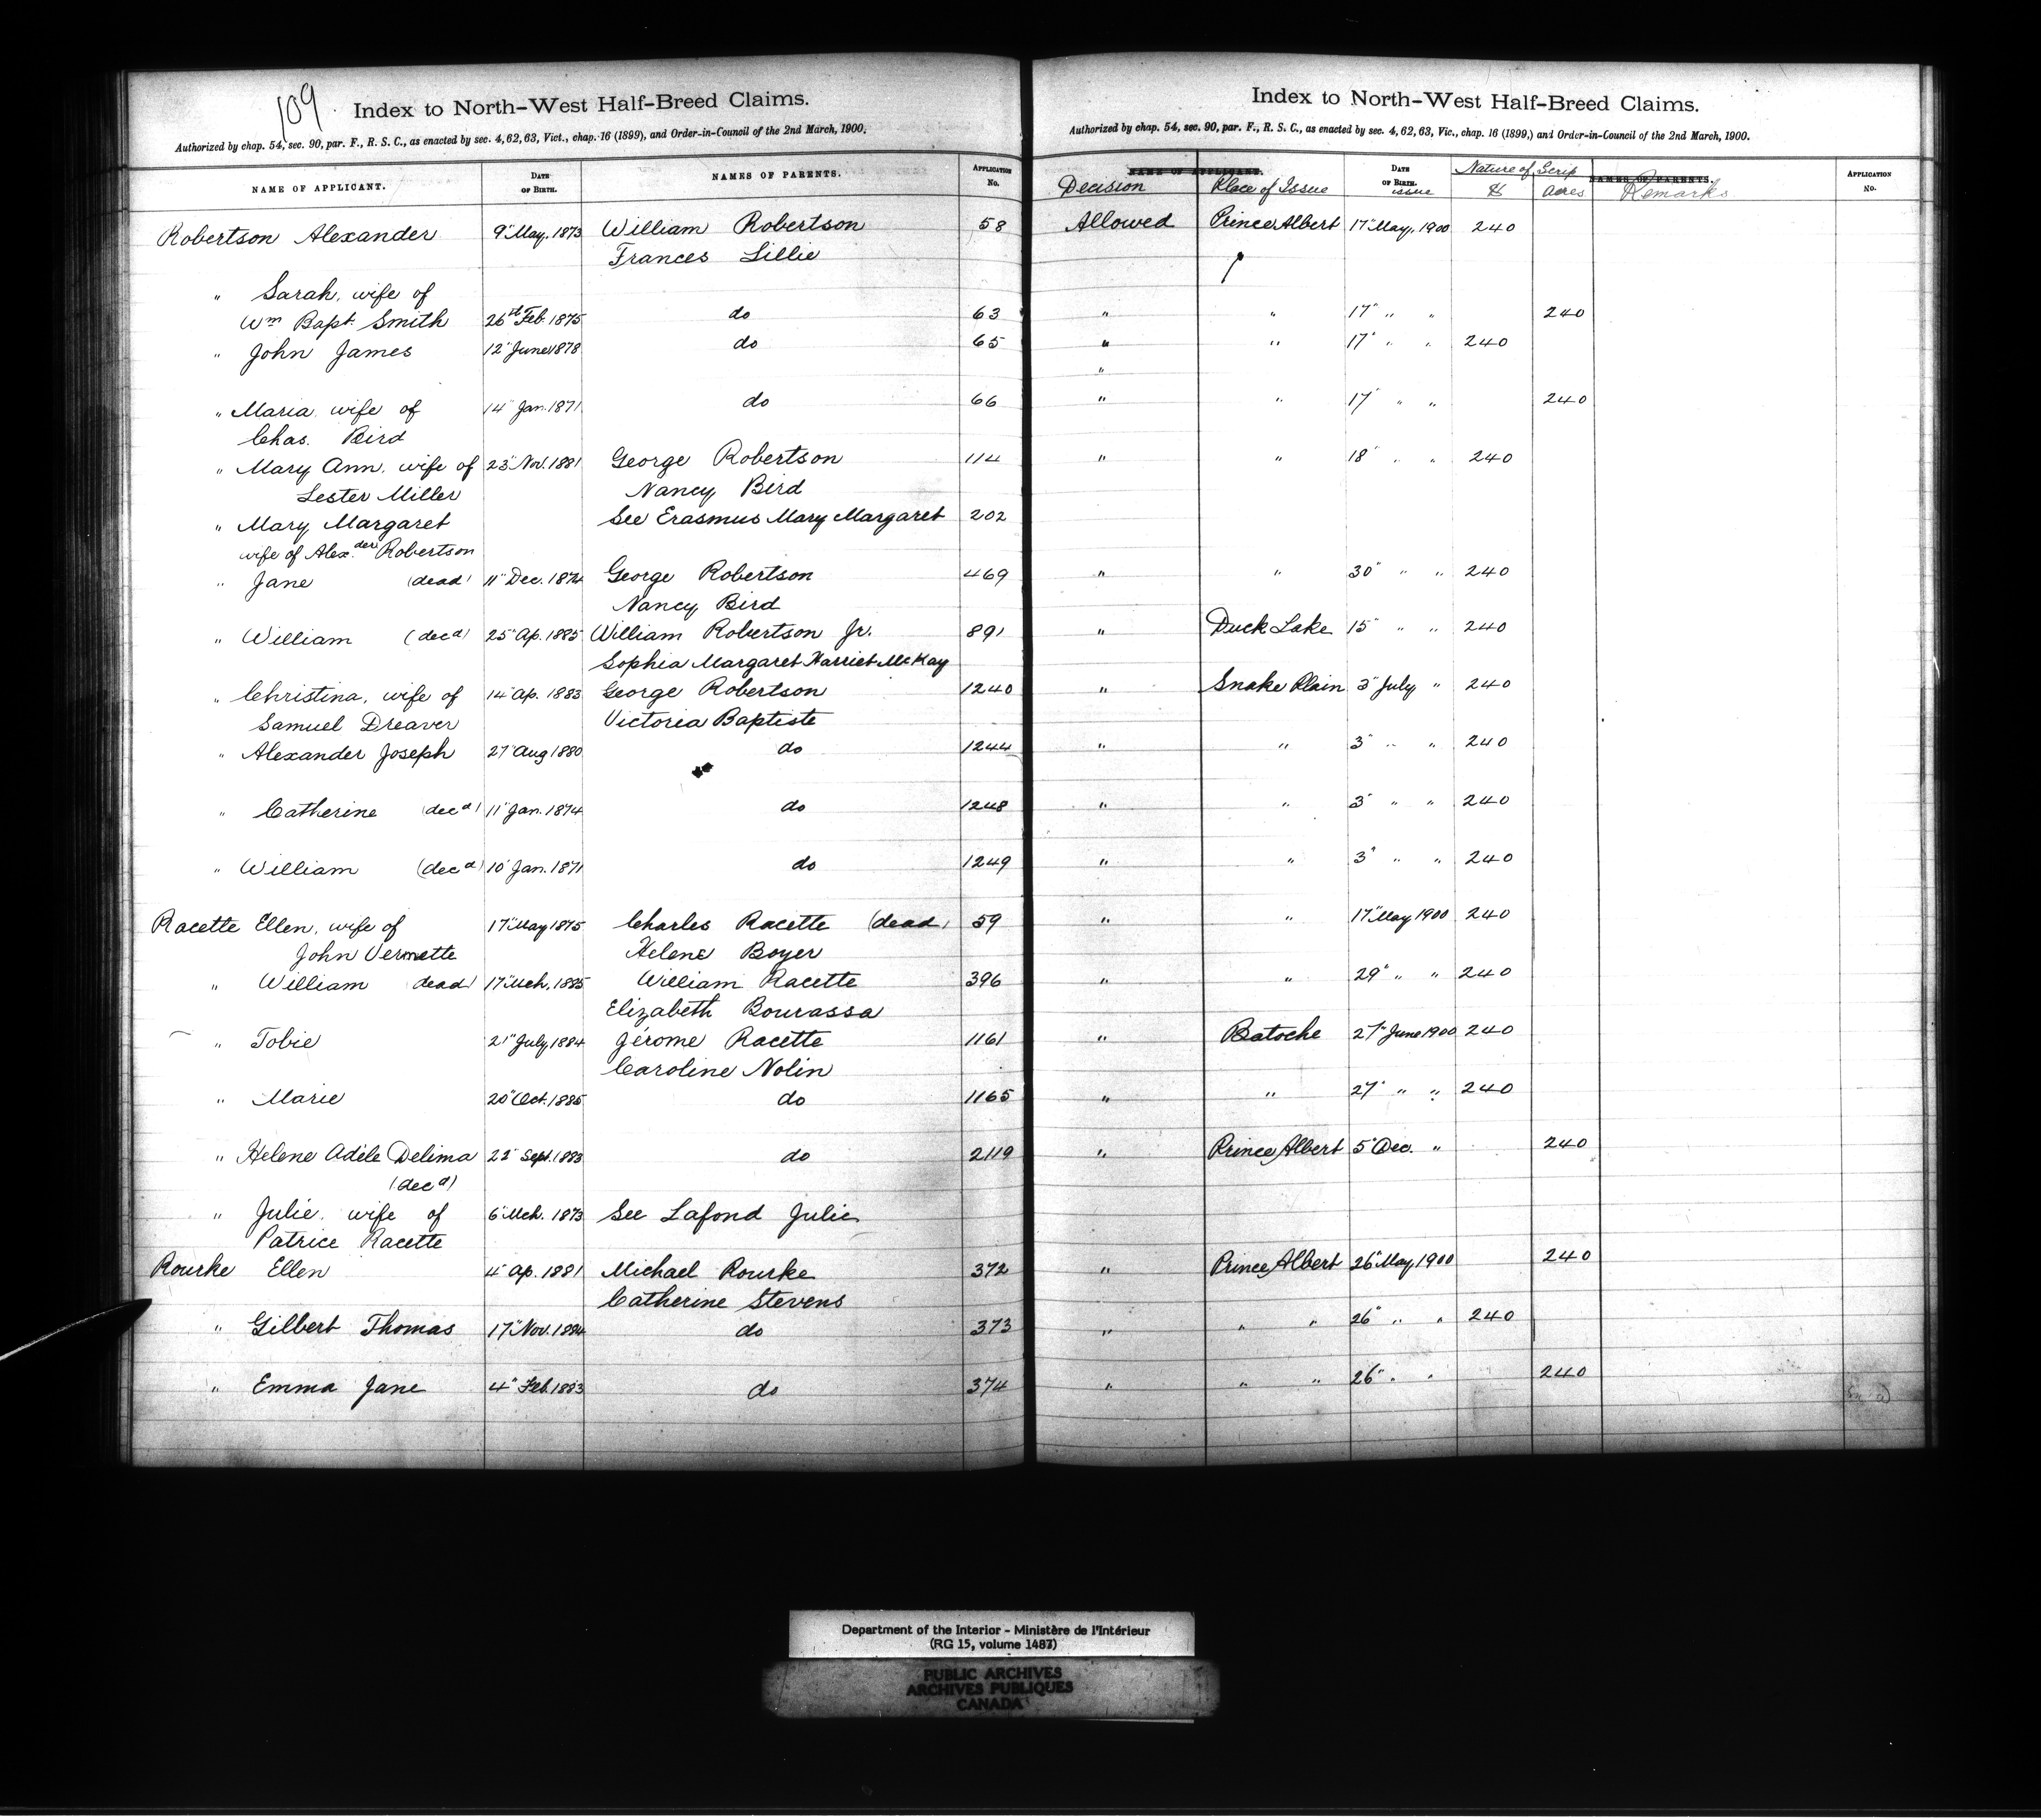 109
Index to North-West Half-Breed Claims.
Authorized by chap. 54, sec. 90, par. F., R. S. C., as enacted by sec. 4, 62, 63, Vict., chap. 16 (1899), and Order-in-Council of the 2nd March, 1900.
NAME OF APPLICANT. DATE OF BIRTH. NAMES OF PARENTS. APPLICATION No.
Robertson Alexander 9" May, 1873 William Robertson 58
Frances Lillie
" Sarah, wife of
Wm Bapt. Smith 26th Feb. 1875 do 63
" John James 12" June 1878 do 65
" Maria wife of 14" Jan. 1871 do 66
Chas. Bird
" Mary Ann, wife of 23" Nov. 1881 George Robertson 114
Lester Miller Nancy Bird
" Mary Margaret See Erasmus Mary Margaret 202
wife of Alex.der Robertson
" Jane (dead) 11" Dec. 1874 George Robertson 469
Nancy Bird
" William (decd) 25" Ap. 1885 William Robertson Jr. 891
Sophia Margaret Harriet McKay
" Christina, wife of 14" Ap. 1883 George Robertson 1240
Samuel Dreaver Victoria Baptiste
" Alexander Joseph 27" Aug 1880 do 1244
" Catherine (decd) 11" Jan. 1874 do 1248
" William (decd) 10" Jan. 1871 do 1249
Racette Ellen, wife of 17" May 1875 Charles Racette (dead) 59
John Vermette Helene Boyer
" William dead) 17" Mch. 1885 William Racette 396
Elizabeth Bourassa
" Tobie 21" July 1884 Jérome Racette 1161
Caroline Nolin
" Marie 20" Oct. 1885 do 1165
" Helene Adéle Delima 22" Sept. 1883 do 2119
(decd)
" Julie, wife of 6" Mch. 1873 See Lafond Julie
Patrice Racette
Rourke Ellen 4" Ap. 1881 Michael Rourke 372
Catherine Stevens
" Gilbert Thomas 17" Nov. 1884 do 373
" Emma Jane 4" Feb. 1883 do 374
Index to North-West Half-Breed Claims.
Authorized by chap. 54, sec. 90, par. F., R. S. C., as enacted by sec. 4, 62, 63, Vic., chap. 16 (1899,) and Order-in-Council of the 2nd March, 1900.
NAME OF APPLICANT. DATE OF BIRTH. Nature of Scrip NAMES OF PARENTS. APPLICATION No.
Decision Place of Issue issue $ acres Remarks
Allowed Prince Albert 17" May, 1900 240
" " 17" " " 240
" " 17" " " 240
"
" " 17" " " 240
" " 18" " " 240
" " 30" " " 240
" Duck Lake 15" " " 240
" Snake Plain 3" July " 240
" " 3" " " 240
" " 3" " " 240
" " 3" " " 240
" " 17" May 1900 240
" " 29" " " 240
" Batoche 27" June 1900 240
" " 27" " " 240
" Prince Albert 5" Dec. " 240
" Prince Albert 26" May 1900 240
" " " 26" " " 240
" " " 26" " " 240
Department of the Interior - Ministère de l'Intérieur
(RG 15, volume 1487)
PUBLIC ARCHIVES
ARCHIVES PUBLIQUES
CANADA